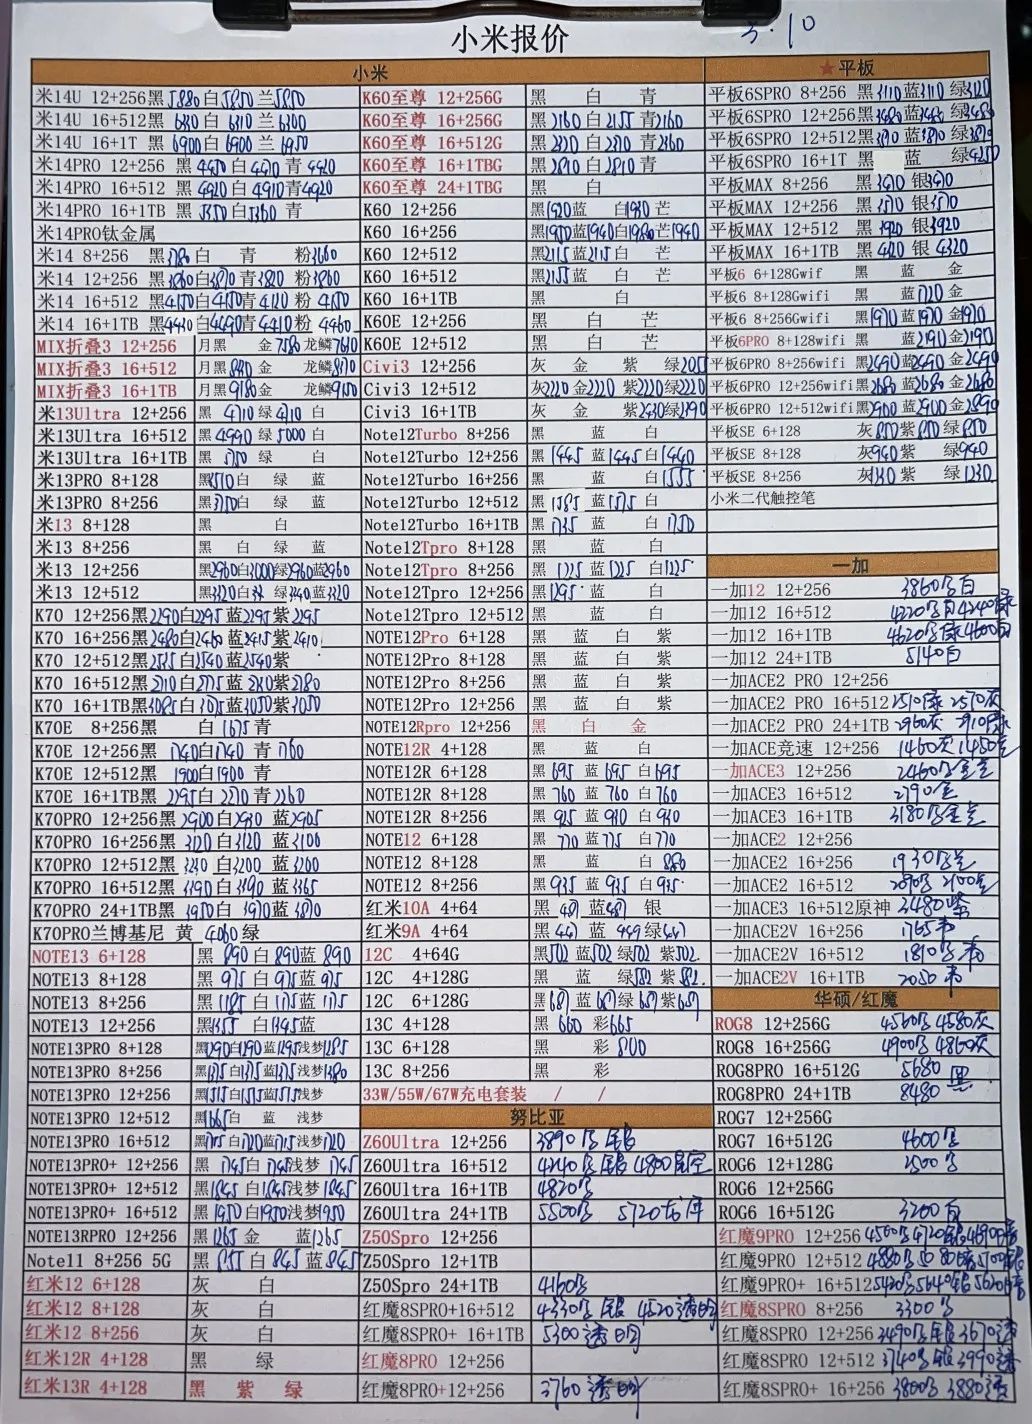 小米报价
3.10
小米
米14U 12+256黑5880白5850兰5850
米14U 16+512黑6330白6310兰6300
米14U 16+1T 黑6900白6900兰6950
米14PRO 12+256 黑4450白4470青4420
米14PRO 16+512 黑4920白4910青4920
米14PRO 16+1TB 黑5350白5360青
米14PRO钛金属
米14 8+256 黑3780白 青 粉3660
米14 12+256 黑3860白3870青3820粉3860
米14 16+512 黑4150白4150青4120粉4150
米14 16+1TB 黑4430白4490青4410粉4460
MIX折叠3 12+256 月黑 金7580龙鳞7610
MIX折叠3 16+512 月黑 金 龙鳞8370
MIX折叠3 16+1TB 月黑9180金 龙鳞9150
米13Ultra 12+256 黑4710绿4710白
米13Ultra 16+512 黑4990绿5000白
米13Ultra 16+1TB 黑 绿 白
米13PRO 8+128 黑3510白 绿 蓝
米13PRO 8+256 黑3750白 绿 蓝
米13 8+128 黑 白
米13 8+256 黑 白 绿 蓝
米13 12+256 黑2960白3000绿2960蓝2960
米13 12+512 黑3320白 绿3340蓝3320
K70 12+256黑2290白2295蓝2295紫2295
K70 16+256黑2480白2460蓝2415紫2410
K70 12+512黑2535白2540蓝2540紫
K70 16+512黑2710白2775蓝2780紫2780
K70 16+1TB黑3085白3075蓝3050紫3050
K70E 8+256黑 白1675青
K70E 12+256黑1740白1740青1760
K70E 12+512黑1900白1900青
K70E 16+1TB黑2295白2270青2260
K70PRO 12+256黑2900白2930蓝2905
K70PRO 16+256黑3120白3120蓝3100
K70PRO 12+512黑3240白3200蓝3200
K70PRO 16+512黑3390白3390蓝3365
K70PRO 24+1TB黑3950白3970蓝3870
K70PRO兰博基尼 黄4060绿
NOTE13 6+128 黑890白890蓝890
NOTE13 8+128 黑975白975蓝975
NOTE13 8+256 黑1185白1175蓝1175
NOTE13 12+256 黑1355白1345蓝
NOTE13PRO 8+128 黑1290白1290蓝1295浅梦1285
NOTE13PRO 8+256 黑1375白1375蓝1375浅梦1380
NOTE13PRO 12+256 黑1515白1515蓝1515浅梦
NOTE13PRO 12+512 黑1665白 蓝 浅梦
NOTE13PRO 16+512 黑1755白1720蓝1715浅梦1720
NOTE13PRO+ 12+256 黑1745白1745浅梦1745
NOTE13PRO+ 12+512 黑1845白1845浅梦1845
NOTE13PRO+ 16+512 黑1950白1950浅梦1950
NOTE13RPRO 12+256 黑1265金 蓝1265
Note11 8+256 5G 黑855白845蓝845
红米12 6+128 灰 白
红米12 8+128 灰 白
红米12 8+256 灰 白
红米12R 4+128 黑 绿
红米13R 4+128 黑 紫 绿
K60至尊 12+256G 黑 白 青
K60至尊 16+256G 黑2160白2155青2160
K60至尊 16+512G 黑2320白2310青2360
K60至尊 16+1TBG 黑2810白2810青
K60至尊 24+1TBG 黑 白
K60 12+256 黑1920蓝 白1930芒
K60 16+256 黑1950蓝1940白1980芒1940
K60 12+512 黑2115蓝2115白 芒
K60 16+512 黑2155蓝 白 芒
K60 16+1TB 黑 白
K60E 12+256 黑 白 芒
K60E 12+512 黑 白 芒
Civi3 12+256 灰 金 紫 绿2055
Civi3 12+512 灰2210金2220紫2220绿2220
Civi3 16+1TB 灰 金 紫2430绿2390
Note12Turbo 8+256 黑 蓝 白
Note12Turbo 12+256 黑1445蓝1445白1440
Note12Turbo 16+256 黑 蓝 白1555
Note12Turbo 12+512 黑1585蓝1575白
Note12Turbo 16+1TB 黑1735蓝 白1750
Note12Tpro 8+128 黑 蓝 白
Note12Tpro 8+256 黑1225蓝1225白1225
Note12Tpro 12+256 黑1295蓝 白
Note12Tpro 12+512 黑 蓝 白
NOTE12Pro 6+128 黑 蓝 白 紫
NOTE12Pro 8+128 黑 蓝 白 紫
NOTE12Pro 8+256 黑 蓝 白 紫
NOTE12Pro 12+256 黑 蓝 白 紫
NOTE12Rpro 12+256 黑 白 金
NOTE12R 4+128 黑 蓝 白
NOTE12R 6+128 黑695蓝695白695
NOTE12R 8+128 黑760蓝760白760
NOTE12R 8+256 黑925蓝910白930
NOTE12 6+128 黑770蓝775白770
NOTE12 8+128 黑 蓝 白880
NOTE12 8+256 黑935蓝935白935
红米10A 4+64 黑 蓝 银
红米9A 4+64 黑447蓝449绿447
12C 4+64G 黑502蓝502绿502紫502
12C 4+128G 黑 蓝 绿582紫582
12C 6+128G 黑 蓝 绿 紫
13C 4+128 黑660彩665
13C 6+128 黑 彩800
13C 8+256 黑 彩
33W/55W/67W充电套装 / /
努比亚
Z60Ultra 12+256 3890 银
Z60Ultra 16+512 4240 银4800星空
Z60Ultra 16+1TB 4820
Z60Ultra 24+1TB 5500 5720
Z50Spro 12+256
Z50Spro 12+1TB
Z50Spro 24+1TB 4160
红魔8SPRO+16+512 4330 银4520透明
红魔8SPRO+ 16+1TB 5300透明
红魔8PRO 12+256
红魔8PRO+12+256 3760透明
★平板
平板6SPRO 8+256 黑3110蓝3110绿3120
平板6SPRO 12+256黑3480蓝3480绿3480
平板6SPRO 12+512黑3810蓝3810绿3820
平板6SPRO 16+1T 黑 蓝 绿4250
平板MAX 8+256 黑3470银3470
平板MAX 12+256 黑3570银3570
平板MAX 12+512 黑3920银3920
平板MAX 16+1TB 黑4320银4320
平板6 6+128Gwif 黑 蓝 金
平板6 8+128Gwifi 黑 蓝1720金
平板6 8+256Gwifi 黑1970蓝1970金1970
平板6PRO 8+128wifi 黑 蓝2190金2190
平板6PRO 8+256wifi黑2490蓝2490金2490
平板6PRO 12+256wifi黑2680蓝2680金2680
平板6PRO 12+512wifi黑2900蓝2900金2890
平板SE 6+128 灰850紫850绿850
平板SE 8+128 灰940紫 绿940
平板SE 8+256 灰1230紫 绿1230
小米二代触控笔
一加
一加12 12+256 3860 白
一加12 16+512 4220 白4240绿
一加12 16+1TB 4620 绿4600白
一加12 24+1TB 5140白
一加ACE2 PRO 12+256
一加ACE2 PRO 16+512 2510绿2570灰
一加ACE2 PRO 24+1TB 2960灰2910绿
一加ACE竞速 12+256 1460灰1450
一加ACE3 12+256 2460
一加ACE3 16+512 2790
一加ACE3 16+1TB 3180
一加ACE2 12+256
一加ACE2 16+256 1930
一加ACE2 16+512 2090 2100
一加ACE3 16+512原神 2480紫
一加ACE2V 16+256 1765
一加ACE2V 16+512 1810
一加ACE2V 16+1TB 2050
华硕/红魔
ROG8 12+256G 4560 4580灰
ROG8 16+256G 4900 4860灰
ROG8PRO 16+512G 5680
ROG8PRO 24+1TB 8480 黑
ROG7 12+256G
ROG7 16+512G 4600
ROG6 12+128G 2500
ROG6 12+256G
ROG6 16+512G 3200白
红魔9PRO 12+256 4560 4720银4690
红魔9PRO 12+512 4880
红魔9PRO+ 16+512 5420 5640银5620
红魔8SPRO 8+256 3300
红魔8SPRO 12+256 3490 银3670透
红魔8SPRO 12+512 3740 银3990透
红魔8SPRO+ 16+256 3800 3880透